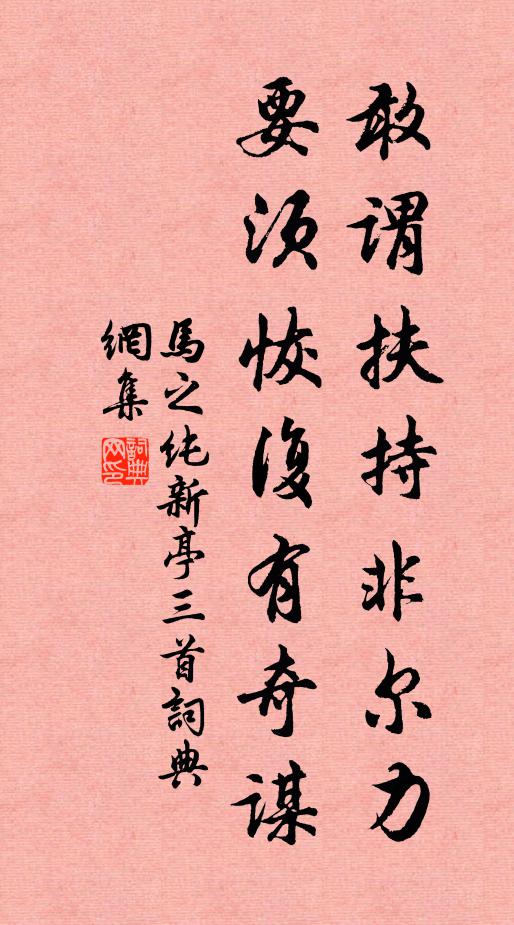 敢谓扶持非尔力
要须恢復有奇谋
馬之纯新亭三首詞典
網集
詞典网印